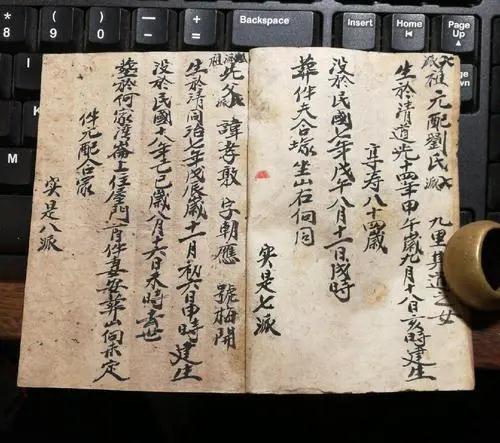 *
8
(
9
)
0
Backspace
Insert
Home
Page
Up
祖元配劉氏派 九里其道之女
生於清道光十四年甲午歲九月十八亥時建生
享寿八十四歲
没於民國七年戊午八月十一日戌時
葬伴夫合塚坐山石向同
实是七派
祖 父 諱孝敦 字朝應 號梅開
生於清同治七年戊辰歲十一月初六日申時建生
没於民國十八年己巳歲八月十六日未時去世
塟於何家湾上住屋門首伴妻安葬山向未定
伴元配合冢
实是八派